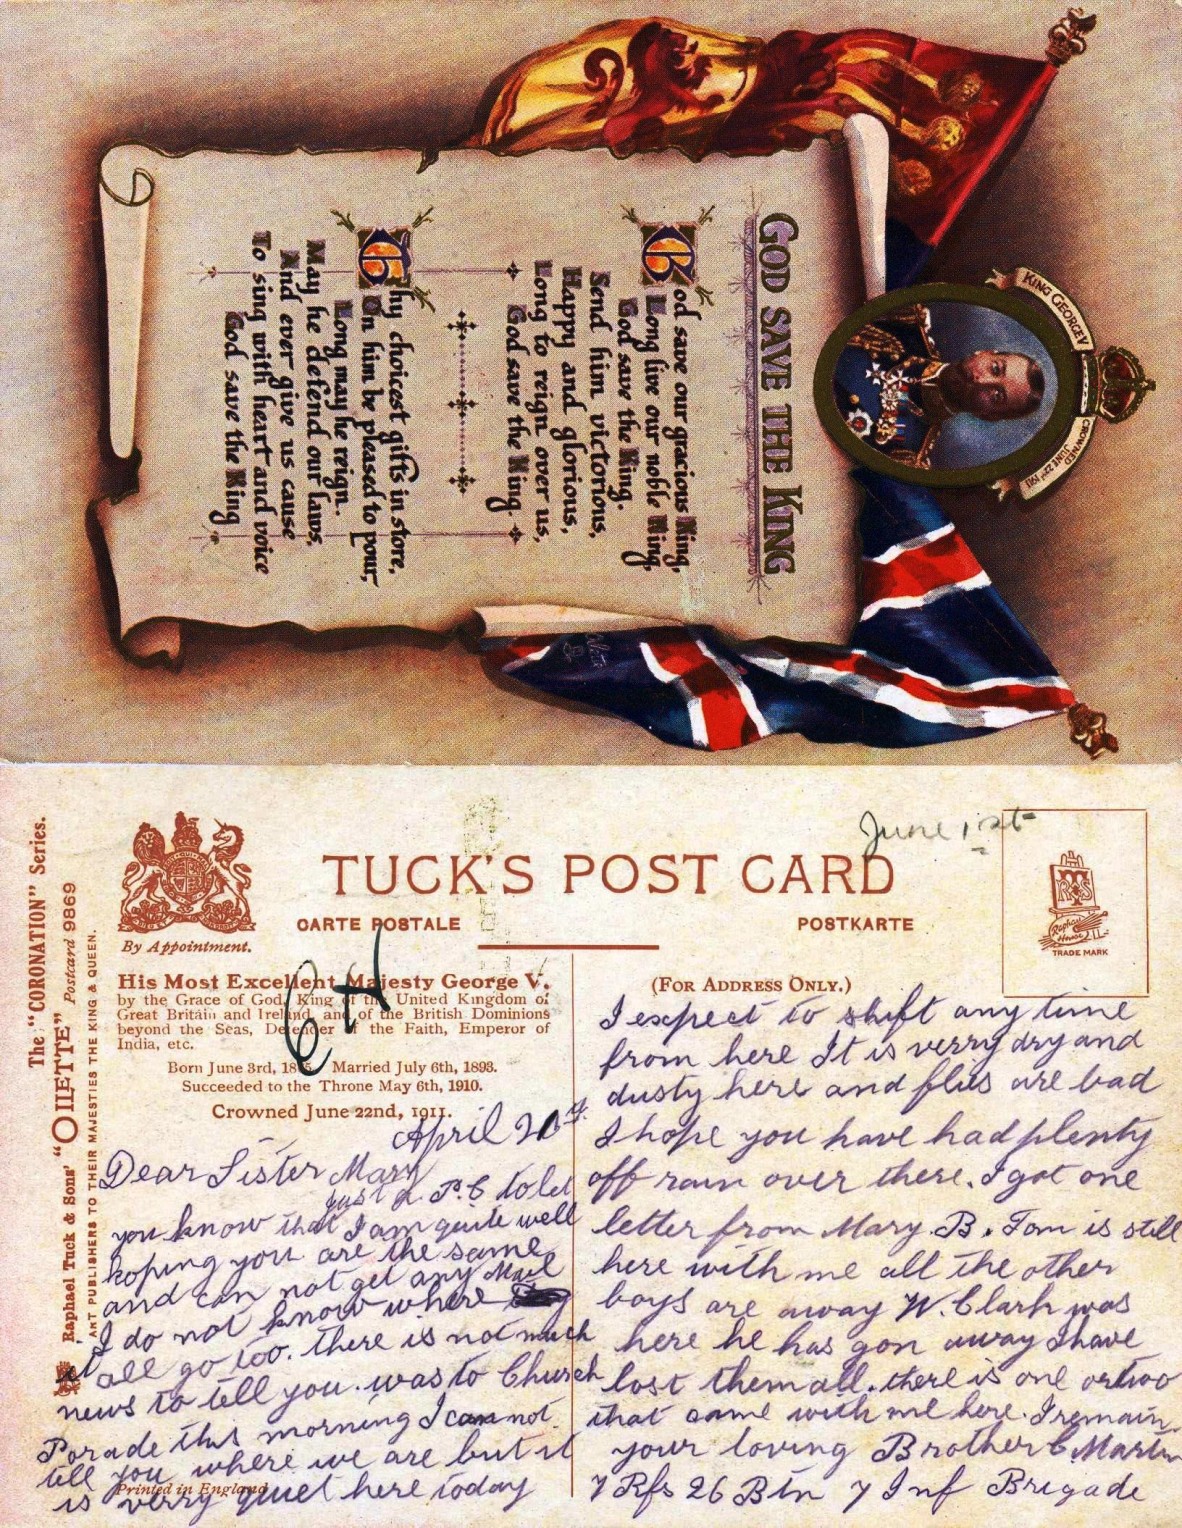 KING GEORGE V
CROWNED JUNE 22nd 1911
GOD SAVE THE KING
God save our gracious King,
Long live our noble King,
God save the King.
Send him victorious,
Happy and glorious,
Long to reign over us,
God save the King.
Thy choicest gifts in store,
On him be pleased to pour,
Long may he reign.
May he defend our laws,
And ever give us cause
To sing with heart and voice
God save the King
The "CORONATION" Series.
Raphael Tuck & Sons' "OILETTE" Postcard 9869
ART PUBLISHERS TO THEIR MAJESTIES THE KING & QUEEN.
By Appointment.
TUCK'S POST CARD
CARTE POSTALE
POSTKARTE
June 1st
Raphael House
TRADE MARK
(FOR ADDRESS ONLY.)
His Most Excellent Majesty George V.
by the Grace of God, King of the United Kingdom of
Great Britain and Ireland, and of the British Dominions
beyond the Seas, Defender of the Faith, Emperor of
India, etc.
Born June 3rd, 1865. Married July 6th, 1893.
Succeeded to the Throne May 6th, 1910.
Crowned June 22nd, 1911.
April
Dear Sister Mary
just a P.C to let
you know that I am quite well
hoping you are the same
and can not get any Mail
I do not know where
it all go too. there is not much
news to tell you. was to Church
Porade this morning I can not
tell you where we are but it
is verry quiet here today
Printed in England
I expect to shift any time
from here It is verry dry and
dusty here and flies are bad
I hope you have had plenty
off rain over there. I got one
letter from Mary B. Tom is still
here with me all the other
boys are away W. Clark was
here he has gon away I have
lost them all. there is one or two
that came with me here. I remain
your loving Brother C. Martin
7 Rfs 26 Btn 7 Inf Brigade